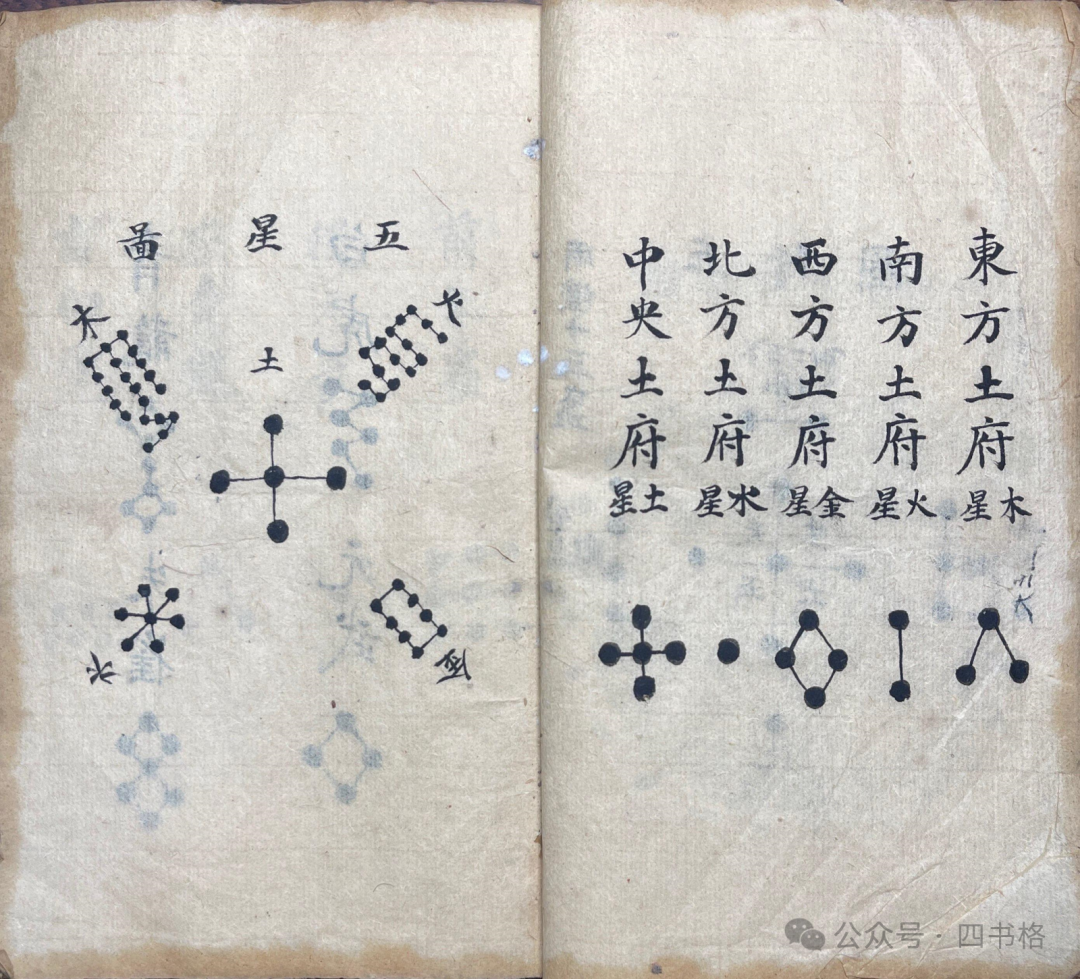 東方土府木星
南方土府火星
西方土府金星
北方土府水星
中央土府土星
五星啚
火
土
木
金
水
公众号 · 四书格